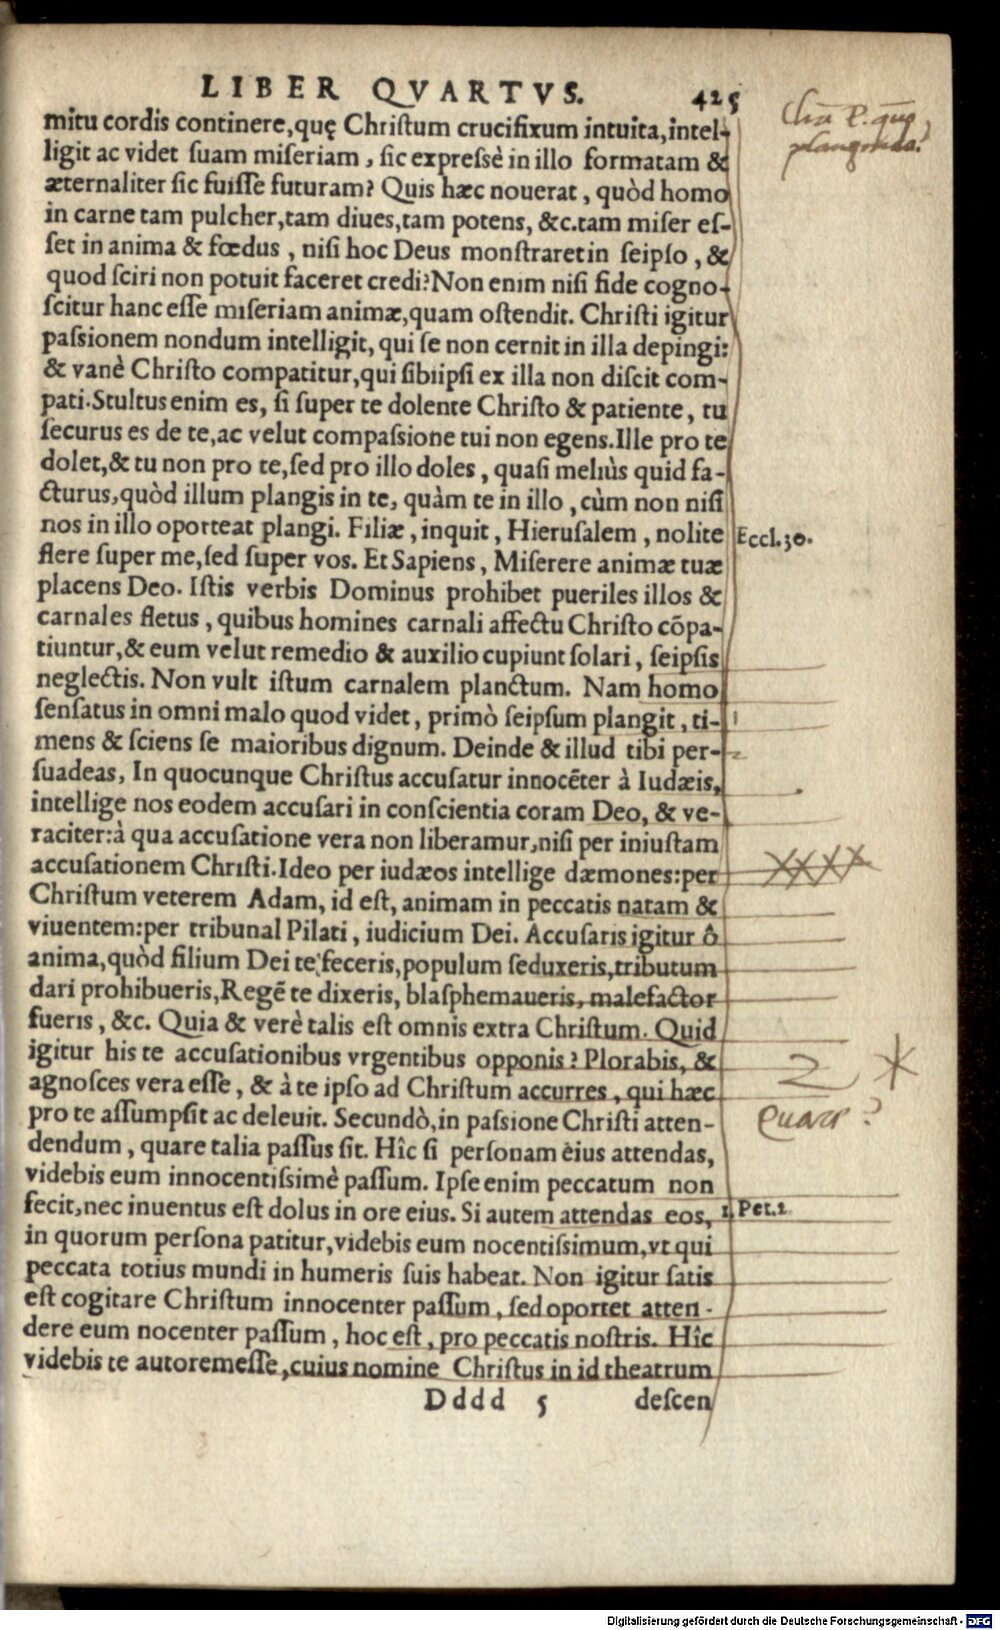 LIBER QVARTVS. 425
mitu cordis continere,quę Chriſtum crucifixum intuita,intel-
ligit ac videt ſuam miſeriam, ſic expreſsè in illo formatam &
æternaliter ſic fuiſſe futuram? Quis hæc nouerat, quòd homo
in carne tam pulcher,tam diues,tam potens, &c.tam miſer eſ-
ſet in anima & fœdus, niſi hoc Deus monſtraret in ſeipſo, &
quod ſciri non potuit faceret credi?Non enim niſi fide cogno-
ſcitur hanc eſſe miſeriam animæ,quam oſtendit. Chriſti igitur
paſsionem nondum intelligit, qui ſe non cernit in illa depingi:
& vanè Chriſto compatitur,qui ſibiipſi ex illa non diſcit com-
pati.Stultus enim es, ſi ſuper te dolente Chriſto & patiente, tu
ſecurus es de te,ac velut compaſsione tui non egens.Ille pro te
dolet,& tu non pro te,ſed pro illo doles, quaſi meliùs quid fa-
cturus,quòd illum plangis in te, quàm te in illo, cùm non niſi
nos in illo oporteat plangi. Filiæ, inquit, Hieruſalem, nolite
Eccl.30.
flere ſuper me,ſed ſuper vos. Et Sapiens, Miſerere animæ tuæ
placens Deo. Iſtis verbis Dominus prohibet pueriles illos &
carnales fletus, quibus homines carnali affectu Chriſto cõpa-
tiuntur,& eum velut remedio & auxilio cupiunt ſolari, ſeipſis
neglectis. Non vult iſtum carnalem planctum. Nam homo
ſenſatus in omni malo quod videt, primò ſeipſum plangit, ti-
mens & ſciens ſe maioribus dignum. Deinde & illud tibi per-
ſuadeas, In quocunque Chriſtus accuſatur innocẽter à Iudæis,
intellige nos eodem accuſari in conſcientia coram Deo, & ve-
raciter:à qua accuſatione vera non liberamur,niſi per iniuſtam
accuſationem Chriſti.Ideo per iudæos intellige dæmones:per
Chriſtum veterem Adam, id eſt, animam in peccatis natam &
viuentem:per tribunal Pilati, iudicium Dei. Accuſaris igitur ô
anima,quòd filium Dei te feceris,populum ſeduxeris,tributum
dari prohibueris,Regẽ te dixeris, blaſphemaueris, malefactor
fueris, &c. Quia & verè talis eſt omnis extra Chriſtum. Quid
igitur his te accuſationibus vrgentibus opponis? Plorabis, &
2
agnoſces vera eſſe, & à te ipſo ad Chriſtum accurres, qui hæc
pro te aſſumpſit ac deleuit. Secundò,in paſsione Chriſti atten-
Quare?
dendum, quare talia paſſus ſit. Hîc ſi perſonam eius attendas,
videbis eum innocentiſsimè paſſum. Ipſe enim peccatum non
fecit,nec inuentus eſt dolus in ore eius. Si autem attendas eos,
1.Pet.2
in quorum perſona patitur,videbis eum nocentiſsimum,vt qui
peccata totius mundi in humeris ſuis habeat. Non igitur ſatis
eſt cogitare Chriſtum innocenter paſſum, ſed oportet atten-
dere eum nocenter paſſum, hoc eſt, pro peccatis noſtris. Hîc
videbis te autorem eſſe,cuius nomine Chriſtus in id theatrum
Dddd 5 deſcen
Digitalisierung gefördert durch die Deutsche Forschungsgemeinschaft - DFG